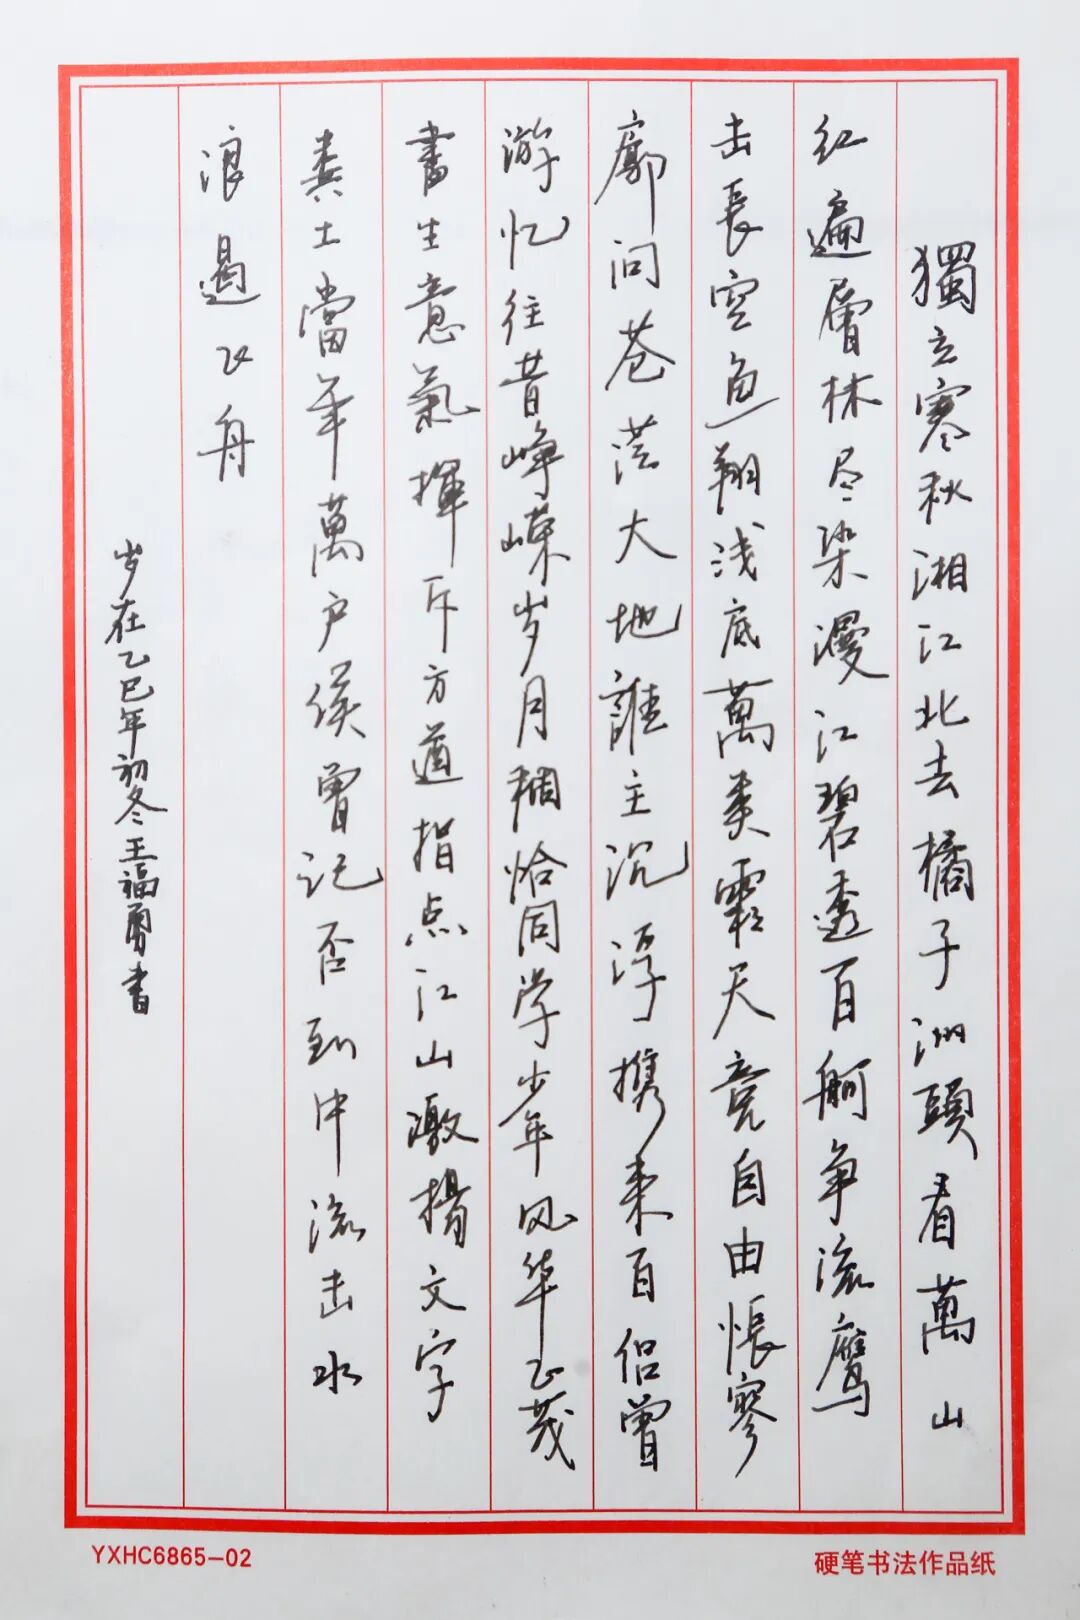 獨立寒秋湘江北去橘子洲頭看萬山
红遍層林尽染漫江碧透百舸争流鹰
击長空鱼翔浅底萬类霜天竞自由悵寥
廓问苍茫大地誰主沉浮携来百侣曾
游忆往昔峥嵘岁月稠恰同学少年风华正茂
書生意氣揮斥方遒指点江山激揚文字
粪土當年萬户侯曾记否到中流击水
浪遏飞舟
岁在乙巳年初冬王福勇書
YXHC6865-02
硬笔书法作品纸